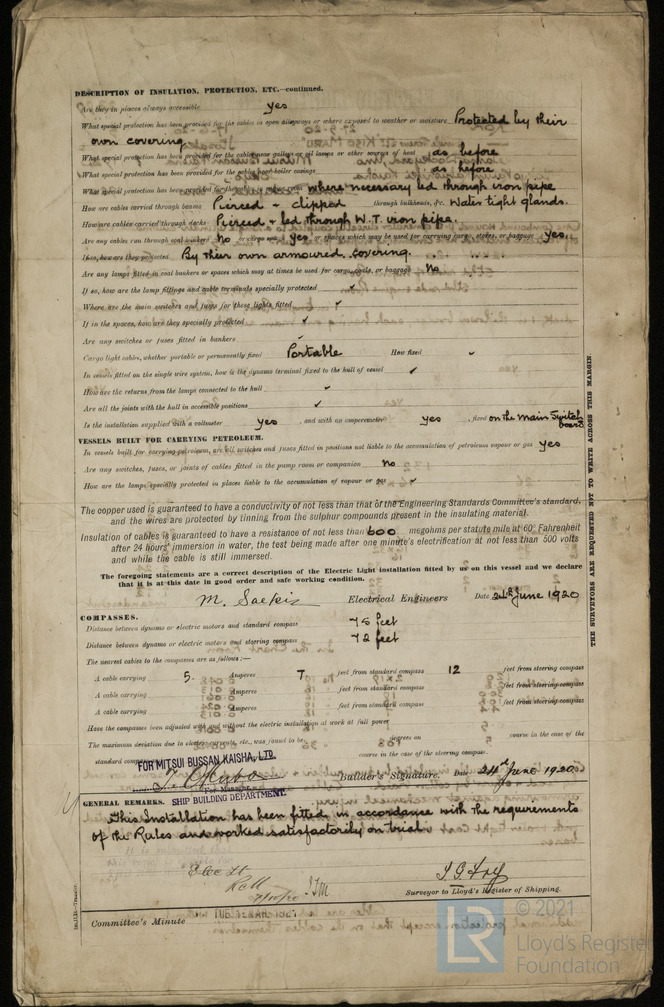 DESCRIPTION OF INSULATION, PROTECTION, ETC.—continued.
Are they in places always accessible yes
What special protection has been provided for the cables in open alleyways or where exposed to weather or moisture Protected by their
own covering
What special protection has been provided for the cables near galleys or oil lamps or other sources of heat as before
What special protection has been provided for the cables near boiler casings as before
What special protection has been provided for the cables in where necessary led through iron pipe
How are cables carried through beams Pierced & clipped through bulkheads, &c. Water tight glands.
How are cables carried through decks Pierced & led through W.T. iron pipe.
Are any cables run through coal bunkers No or cargo spaces yes or spaces which may be used for carrying cargo, stores, or baggage yes.
If so, how are they protected By their own armoured covering.
Are any lamps fitted in coal bunkers or spaces which may at times be used for cargo, coals, or baggage No
If so, how are the lamp fittings and cable terminals specially protected ✓
Where are the main switches and fuses for these lights fitted ✓
If in the spaces, how are they specially protected ✓
Are any switches or fuses fitted in bunkers
Cargo light cables, whether portable or permanently fixed Portable How fixed ✓
In vessels fitted on the single wire system, how is the dynamo terminal fixed to the hull of vessel ✓
How are the returns from the lamps connected to the hull ✓
Are all the joints with the hull in accessible positions ✓
Is the installation supplied with a voltmeter yes , and with an amperemeter yes , fixed on the main switch
board
VESSELS BUILT FOR CARRYING PETROLEUM.
In vessels built for carrying petroleum, are all switches and fuses fitted in positions not liable to the accumulation of petroleum vapour or gas yes
Are any switches, fuses, or joints of cables fitted in the pump room or companion no
How are the lamps specially protected in places liable to the accumulation of vapour or gas ✓
The copper used is guaranteed to have a conductivity of not less than that of the Engineering Standards Committee's standard,
and the wires are protected by tinning from the sulphur compounds present in the insulating material.
Insulation of cables is guaranteed to have a resistance of not less than 600 megohms per statute mile at 60° Fahrenheit
after 24 hours' immersion in water, the test being made after one minute's electrification at not less than 500 volts
and while the cable is still immersed.
The foregoing statements are a correct description of the Electric Light installation fitted by us on this vessel and we declare
that it is at this date in good order and safe working condition.
M. Saekis Electrical Engineers Date 24th June 1920
COMPASSES.
Distance between dynamo or electric motors and standard compass 75 feet
Distance between dynamo or electric motors and steering compass 72 feet
The nearest cables to the compasses are as follows:—
A cable carrying 5. Amperes 7 feet from standard compass 12 feet from steering compass
A cable carrying Amperes feet from standard compass feet from steering compass
A cable carrying Amperes feet from standard compass feet from steering compass
Have the compasses been adjusted with and without the electric installation at work at full power
The maximum deviation due to electric currents, etc., was found to be degrees on course in the case of the
standard compass course in the case of the steering compass.
FOR MITSUI BUSSAN KAISHA, LTD.
Builder's Signature. Date 24th June 1920
For Manager
SHIP BUILDING DEPARTMENT.
GENERAL REMARKS.
This Installation has been fitted in accordance with the requirements
of the Rules and worked satisfactorily on trial.
Surveyor to Lloyd's Register of Shipping.
Committee's Minute
THE SURVEYORS ARE REQUESTED NOT TO WRITE ACROSS THIS MARGIN
LR
© 2021
Lloyd's Register
Foundation